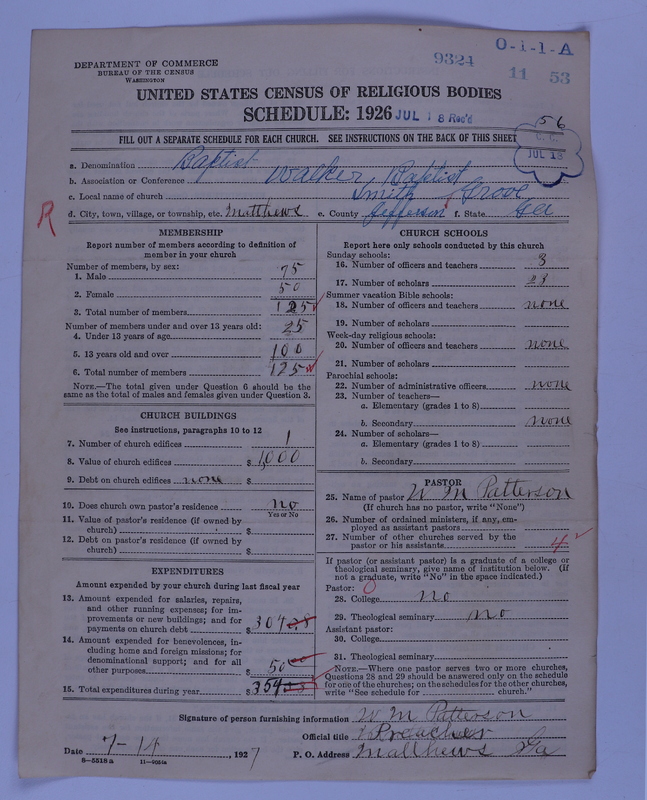 O-1-1-A
DEPARTMENT OF COMMERCE
BUREAU OF THE CENSUS
WASHINGTON
9324
11 53
UNITED STATES CENSUS OF RELIGIOUS BODIES
SCHEDULE: 1926
JUL 18 Rec'd
56
FILL OUT A SEPARATE SCHEDULE FOR EACH CHURCH. SEE INSTRUCTIONS ON THE BACK OF THIS SHEET
JUL 18
a. Denomination Baptist
b. Association or Conference Walker Baptist
c. Local name of church Smith Grove
R
d. City, town, village, or township, etc. Matthews e. County Jefferson f. State Ga
MEMBERSHIP
Report number of members according to definition of member in your church
Number of members, by sex:
1. Male 75
2. Female 50
3. Total number of members 125
Number of members under and over 13 years old:
4. Under 13 years of age 25
5. 13 years old and over 100
6. Total number of members 125
NOTE.—The total given under Question 6 should be the
same as the total of males and females given under Question 3.
CHURCH BUILDINGS
See instructions, paragraphs 10 to 12
7. Number of church edifices 1
8. Value of church edifices $ 1,000
9. Debt on church edifices none $
10. Does church own pastor's residence no
Yes or No
11. Value of pastor's residence (if owned by
church) $
12. Debt on pastor's residence (if owned by
church) $
EXPENDITURES
Amount expended by your church during last fiscal year
13. Amount expended for salaries, repairs,
and other running expenses; for im-
provements or new buildings; and for
payments on church debt $ 304
14. Amount expended for benevolences, in-
cluding home and foreign missions; for
denominational support; and for all
other purposes $ 50
15. Total expenditures during year $ 354
CHURCH SCHOOLS
Report here only schools conducted by this church
Sunday schools:
16. Number of officers and teachers 3
17. Number of scholars 23
Summer vacation Bible schools:
18. Number of officers and teachers none
19. Number of scholars
Week-day religious schools:
20. Number of officers and teachers none
21. Number of scholars
Parochial schools:
22. Number of administrative officers none
23. Number of teachers—
a. Elementary (grades 1 to 8)
b. Secondary none
24. Number of scholars—
a. Elementary (grades 1 to 8)
b. Secondary
PASTOR
25. Name of pastor W M Patterson
(If church has no pastor, write "None")
26. Number of ordained ministers, if any, em-
ployed as assistant pastors
27. Number of other churches served by the
pastor or his assistants 4
If pastor (or assistant pastor) is a graduate of a college or
theological seminary, give name of institution below. (If
not a graduate, write "No" in the space indicated.)
Pastor: 0
28. College no
29. Theological seminary no
Assistant pastor:
30. College
31. Theological seminary
NOTE.—Where one pastor serves two or more churches,
Questions 28 and 29 should be answered only on the schedule
for one of the churches; on the schedules for the other churches,
write "See schedule for church."
Signature of person furnishing information W M Patterson
Official title Preacher
Date 7-14, 1927 P. O. Address Matthews Ga
8-5518a 11-9054a